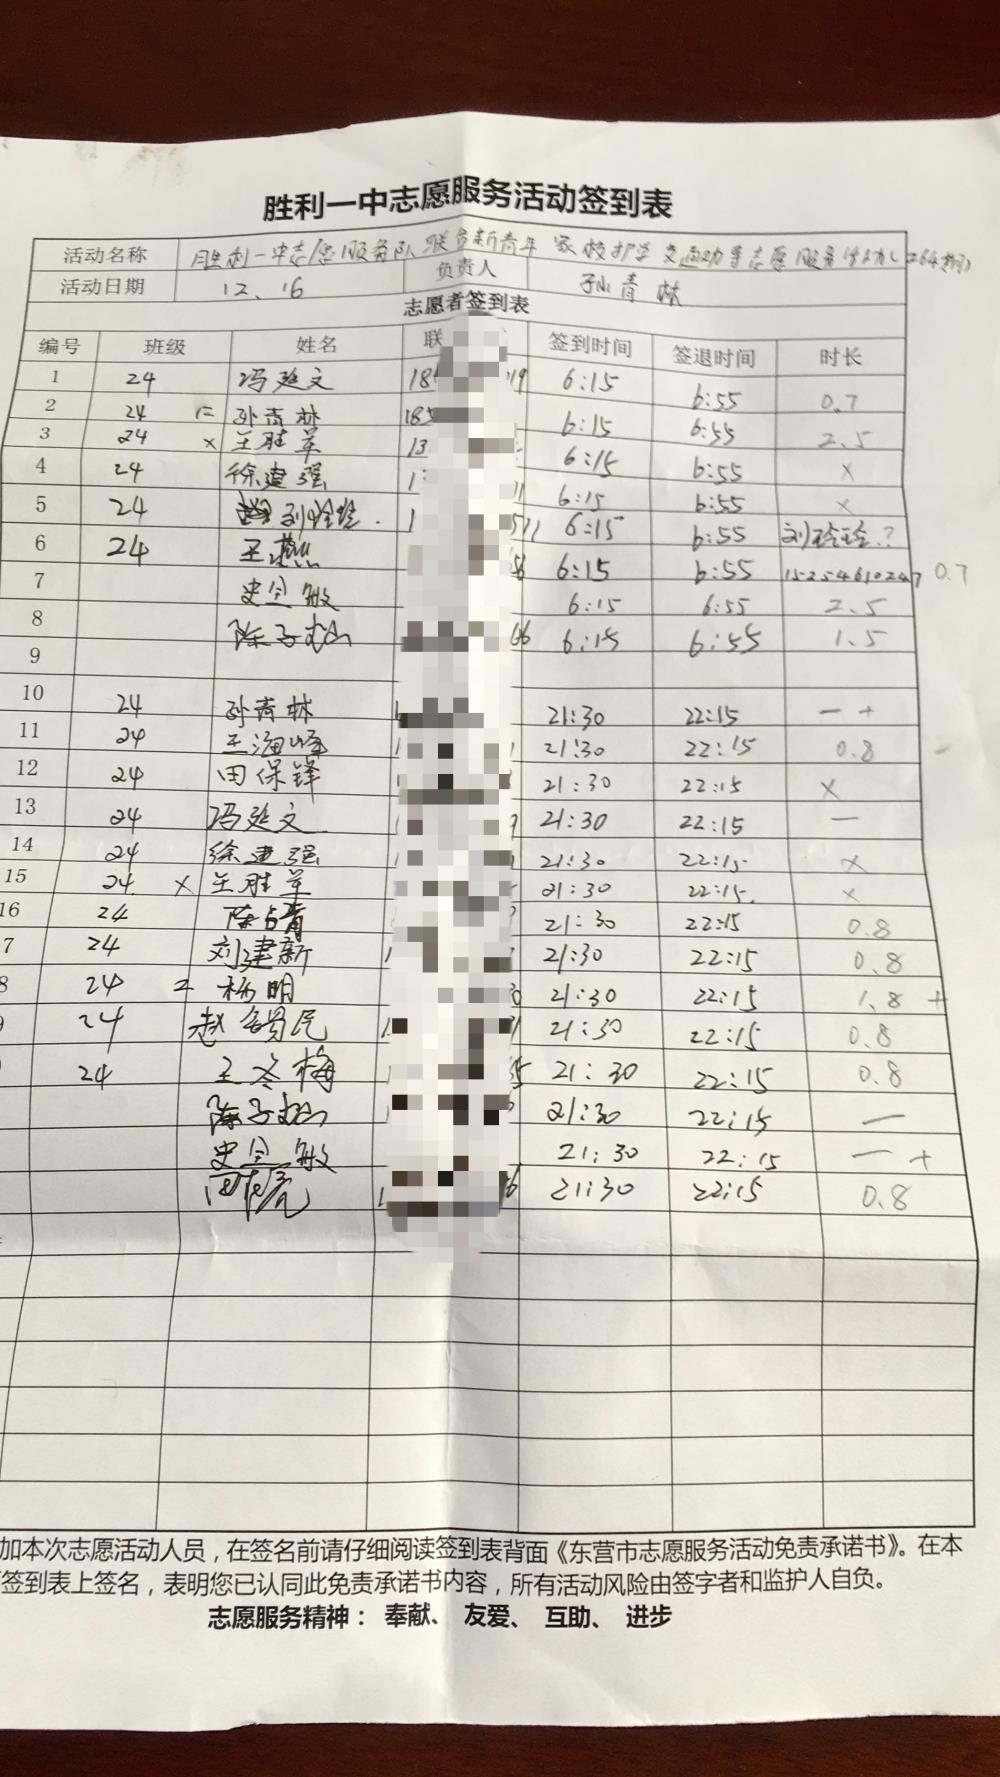 胜利一中志愿服务活动签到表
活动名称 胜利一中志愿服务队联合新青年 家校护学 交通劝导志愿服务活动(264期)
活动日期 12、16 负责人 孙青林
志愿者签到表
编号 班级 姓名 联 签到时间 签退时间 时长
1 24 冯延文 18 19 6:15 6:55 0.7
2 24 二 孙青林 185 6:15 6:55 2.5
3 24 × 王胜革 13 6:15 6:55 ×
4 24 徐建强 1 6:15 6:55 ×
5 24 刘玲玲. 1 511 6:15 6:55 刘玲玲.?
6 24 王燕 6:15 6:55 15254610247 0.7
7 史全敏 6:15 6:55 2.5
8 陈子 66 6:15 6:55 1.5
9
10 24 孙青林 21:30 22:15 — +
11 24 王海峰 1 21:30 22:15 0.8
12 24 田保锋 21:30 22:15 ×
13 24 冯延文 9 21:30 22:15 —
14 24 徐建强 21:30 22:15 ×
15 24 × 王胜革 21:30 22:15 ×
16 24 陈占青 21:30 22:15 0.8
7 24 刘建新 21:30 22:15 0.8
8 24 = 杨明 21:30 22:15 1.8 +
24 赵 民 21:30 22:15 0.8
24 王冬梅 35 21:30 22:15 0.8
陈子 21:30 22:15 —
史全敏 21:30 22:15 — +
1 6 21:30 22:15 0.8
加本次志愿活动人员，在签名前请仔细阅读签到表背面《东营市志愿服务活动免责承诺书》。在本
签到表上签名，表明您已认同此免责承诺书内容，所有活动风险由签字者和监护人自负。
志愿服务精神： 奉献、 友爱、 互助、 进步